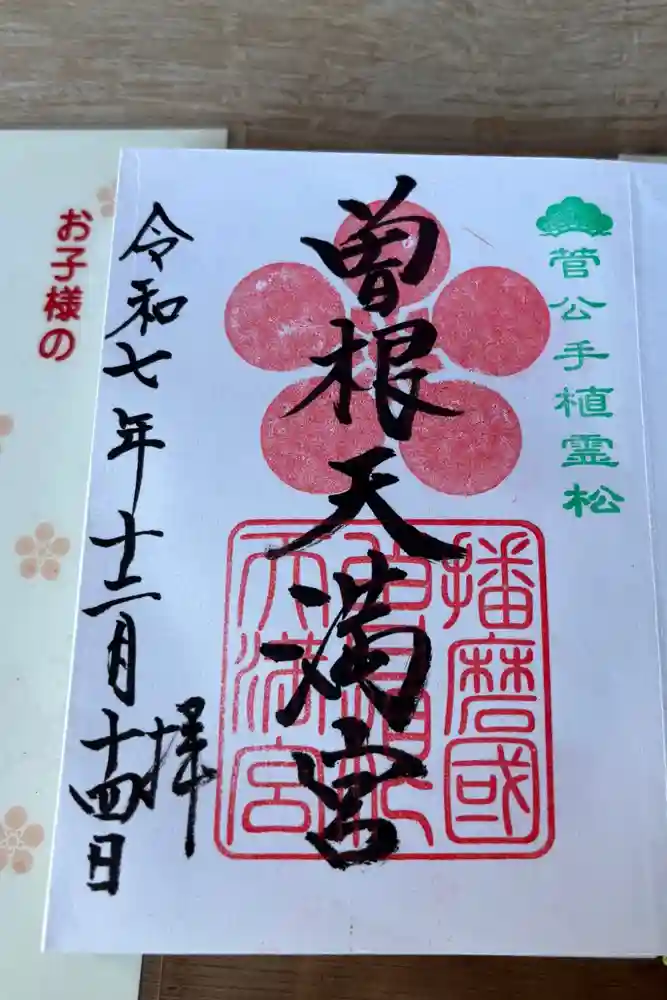 菅公手植霊松
曽根天満宮
播磨國
天満宮
令和七年十二月十四日
拝
お子様の